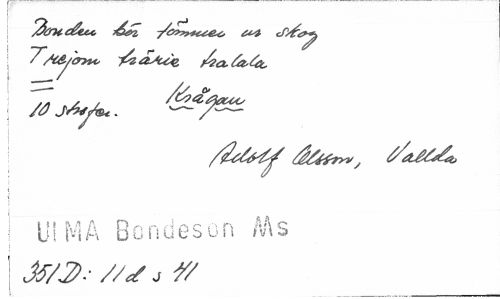 Bonden kör tömmer ur skog
Trejom trärie tralala
10 strofer.
Krågan
Adolf Olsson, Vallda
ULMA Bondeson Ms
351 D: 11 d s 41